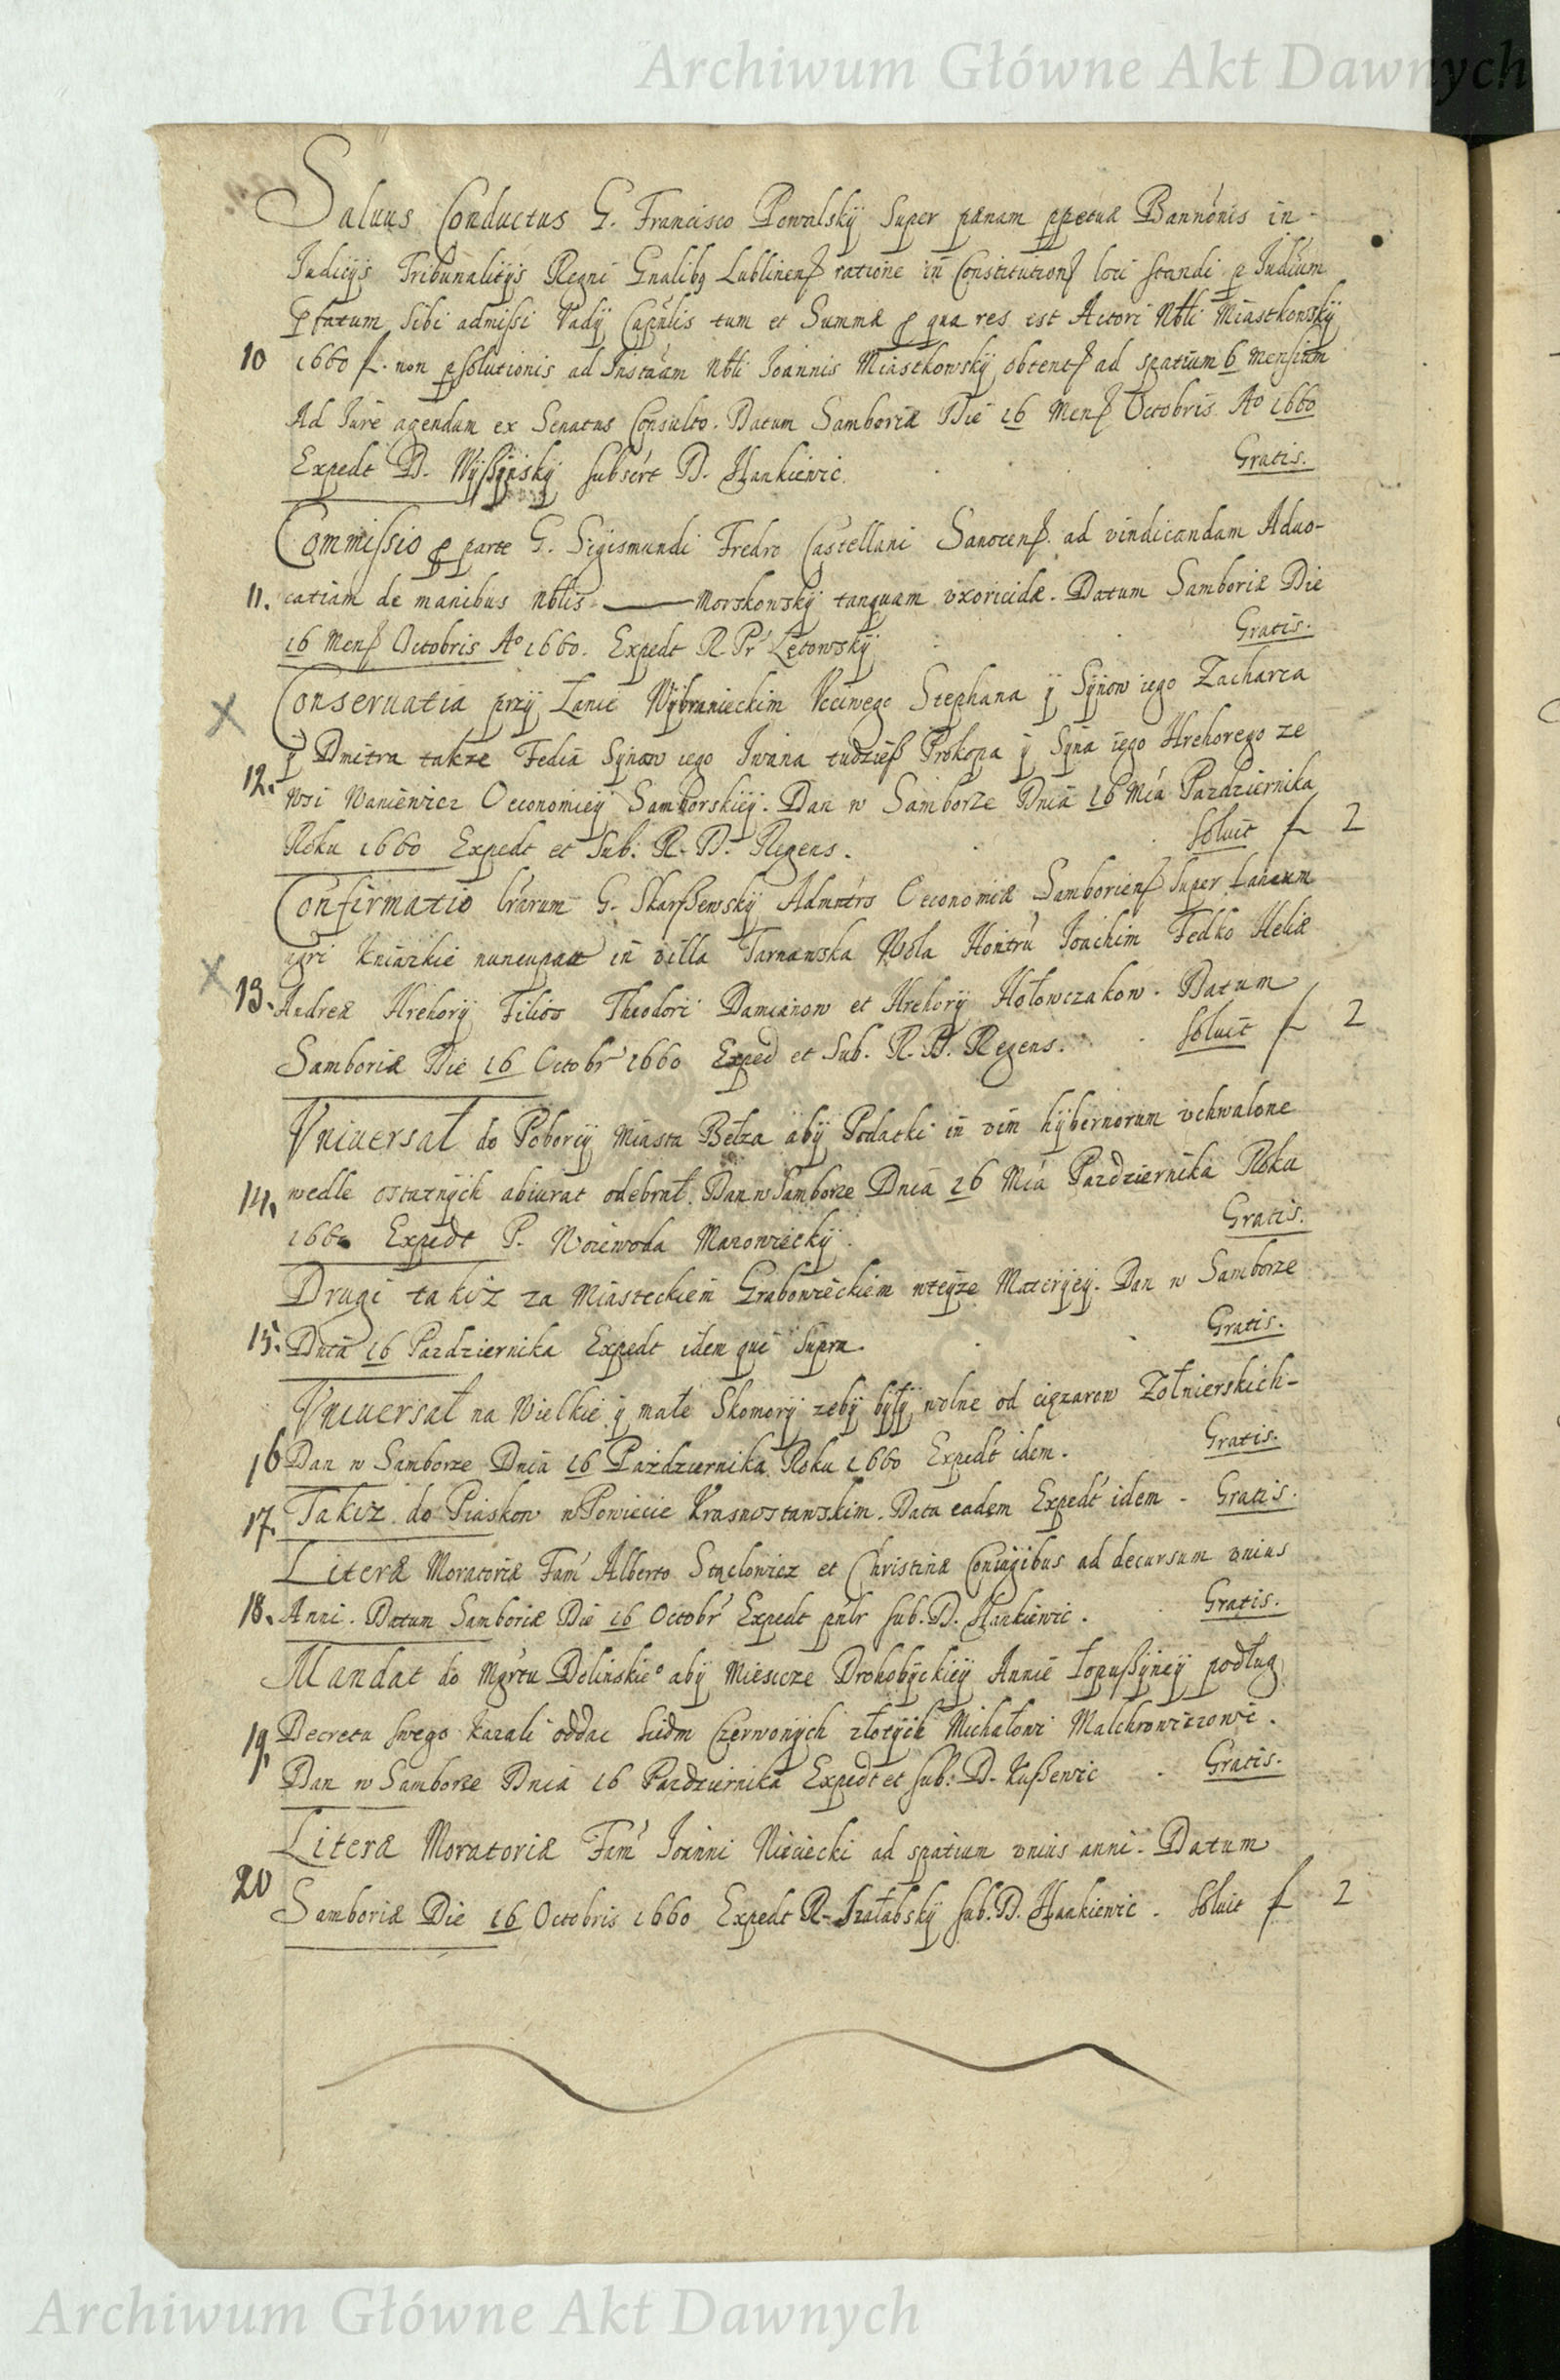 Archiwum Główne Akt Dawnych
Saluus Conductus G. Francisco Powalskÿ Super pænam ppetuæ Bannonis in
Judicÿs Tribunalitÿs Regni Gnalibq Lublinenſ ratione in Constitution loci standi p Judium
pfatum sibi admissi Vadÿ Capulis tum et Summæ p qua res est Actori Nbli Miastkowskÿ
10 1660 f. non psolutionis ad Instãam Nbli Joannis Miastkowskÿ obtent ad spatium 6 mensium
Ad Jure agendum ex Senatus Consulto. Datum Samboriæ Die 16 Menſ Octobris Ao 1660
Expedt D. Wÿßÿnskÿ subscrt D. Hankiewic. Gratis.
Commissio p parte G. Sigismundi Fredro Castellani Sanocenſ. ad vindicandam Aduo-
11. catiam de manibus Nblis — Morskowskÿ tanquam vxoricidæ. Datum Samboriæ Die
16 Menſ Octobris Ao 1660. Expedt R. Pr Lętowskÿ Gratis.
Conseruatia przÿ Łanie Wÿbranieckim Vcciwego Stephana ÿ Sÿnow iego Zacharca
ÿ Dmitra takze Fedia Sÿnow iego Iwana tudzieß Prokopa ÿ Sÿna iego Hrehorego ze
12. Wsi Waniewicz Oeconomieÿ Samborskieÿ. Dan w Samborze Dnia 16 Mca Pazdziernika
Roku 1660 Expedt et Sub. R. D. Regens. soluit f 2
Confirmatio lrarum G. Skarßewskÿ Admntrs Oeconomiæ Samborienſ super Laneum
agri Kniazkie nuncupatt in villa Tarnawska Wola Joachim Fedko Heliæ
13. Andreæ Hrehorÿ Filior Theodori Damianow et Hrehorÿ Hołowczakow. Datum
Samboriæ Die 16 Octobr 1660 Exped et Sub. R. D. Regens. soluit f 2
Vniuersał do Poborcÿ Miasta Bełza abÿ Podatki in vim hÿbernorum vchwalone
14. wedle ostatnÿch abiurat odebrał. Dan w Samborze Dnia 16 Mca Pazdziernika Roku
1660 Expedt P. Woiewoda Mazowieckÿ. Gratis.
Drugi takiz za Miasteckiem Grabowieckiem wteÿze Materÿeÿ. Dan w Samborze
15. Dnia 16 Pazdziernika Expedt idem qui supra. Gratis.
Vniuersał na Wielkie ÿ małe Skomorÿ zebÿ bÿłÿ wolne od cięzarow Zołnierskich-
16 Dan w Samborze Dnia 16 Pazdziernika Roku 1660 Expedt idem. Gratis.
17. Takiz do Piaskow w Powiecie Krasnostawskim. Data eadem Expedt idem - Gratis.
Literæ Moratoriæ Fam Alberto Staclowicz et Christinæ Coniugibus ad decursum vnius
18. Anni. Datum Samboriæ Die 16 Octobr Expedt pnlr sub. D. Hankiewic. Gratis.
Mandat do Mgrtu Dolinskieo abÿ Miescze Drohobÿckieÿ Annie Łopußÿneÿ podług
19. Decretu swego kazali oddac siedm Czerwonÿch złotÿch Michałowi Malchrowiczowi.
Dan w Samborze Dnia 16 Pazdziernika Expedt et sub. D. Kußewic Gratis.
Literæ Moratoriæ Fam Joanni Nieciecki ad spatium vnius anni. Datum
20 Samboriæ Die 16 Octobris 1660 Expedt R. Szałabskÿ sub. D. Hankiewic. Soluit f 2
Archiwum Główne Akt Dawnych